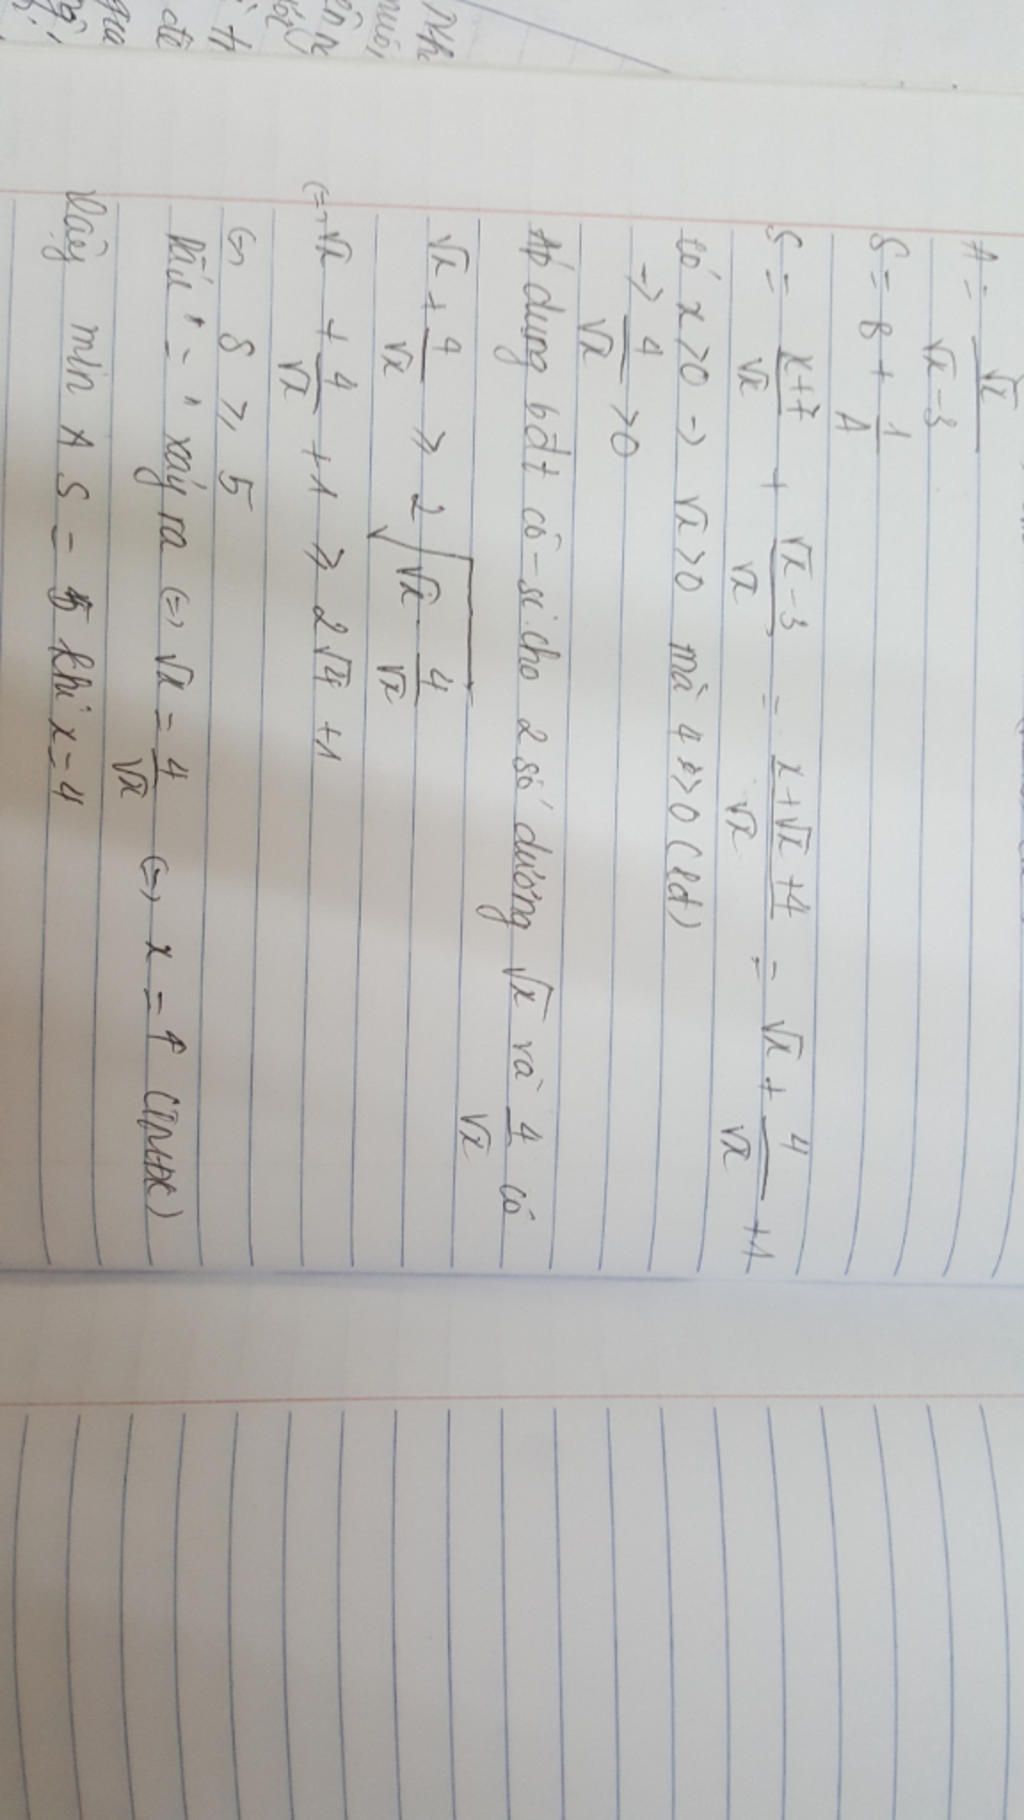 A = √x / (√x - 3)
S = B + 1/A
S = (x+7)/√x + (√x - 3)/√x = (x + √x + 4)/√x = √x + 4/√x + 1
Có x > 0 → √x > 0 mà 4 > 0 (lđ)
→ 4/√x > 0
Áp dụng bđt cô-si cho 2 số dương √x và 4/√x có
√x + 4/√x ≥ 2√(√x · 4/√x)
(=) √x + 4/√x + 1 ≥ 2√4 + 1
(=) S ≥ 5
Dấu "=" xảy ra (=) √x = 4/√x (=) x = 4 (TMĐK)
Vậy min S = 5 khi x = 4